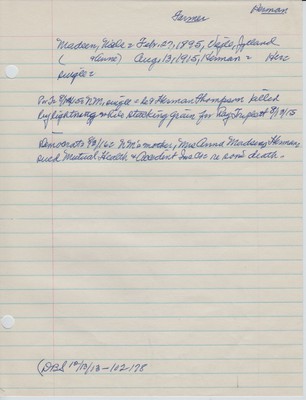 Herman
Farmer
Madsen, Niels = Feb. 27, 1895, Vejle, Jylland
( +Anne) Aug 13, 1915, Herman =
single =
NM, single = bet Herman + Thompson killed
by lightning while stacking grain for
Democrat NM's mother, Mrs Anna Madsen, Herman,
sued Mutual Health + Accident Ins Co = re son's death -
(DBS 12/13/13-102-178